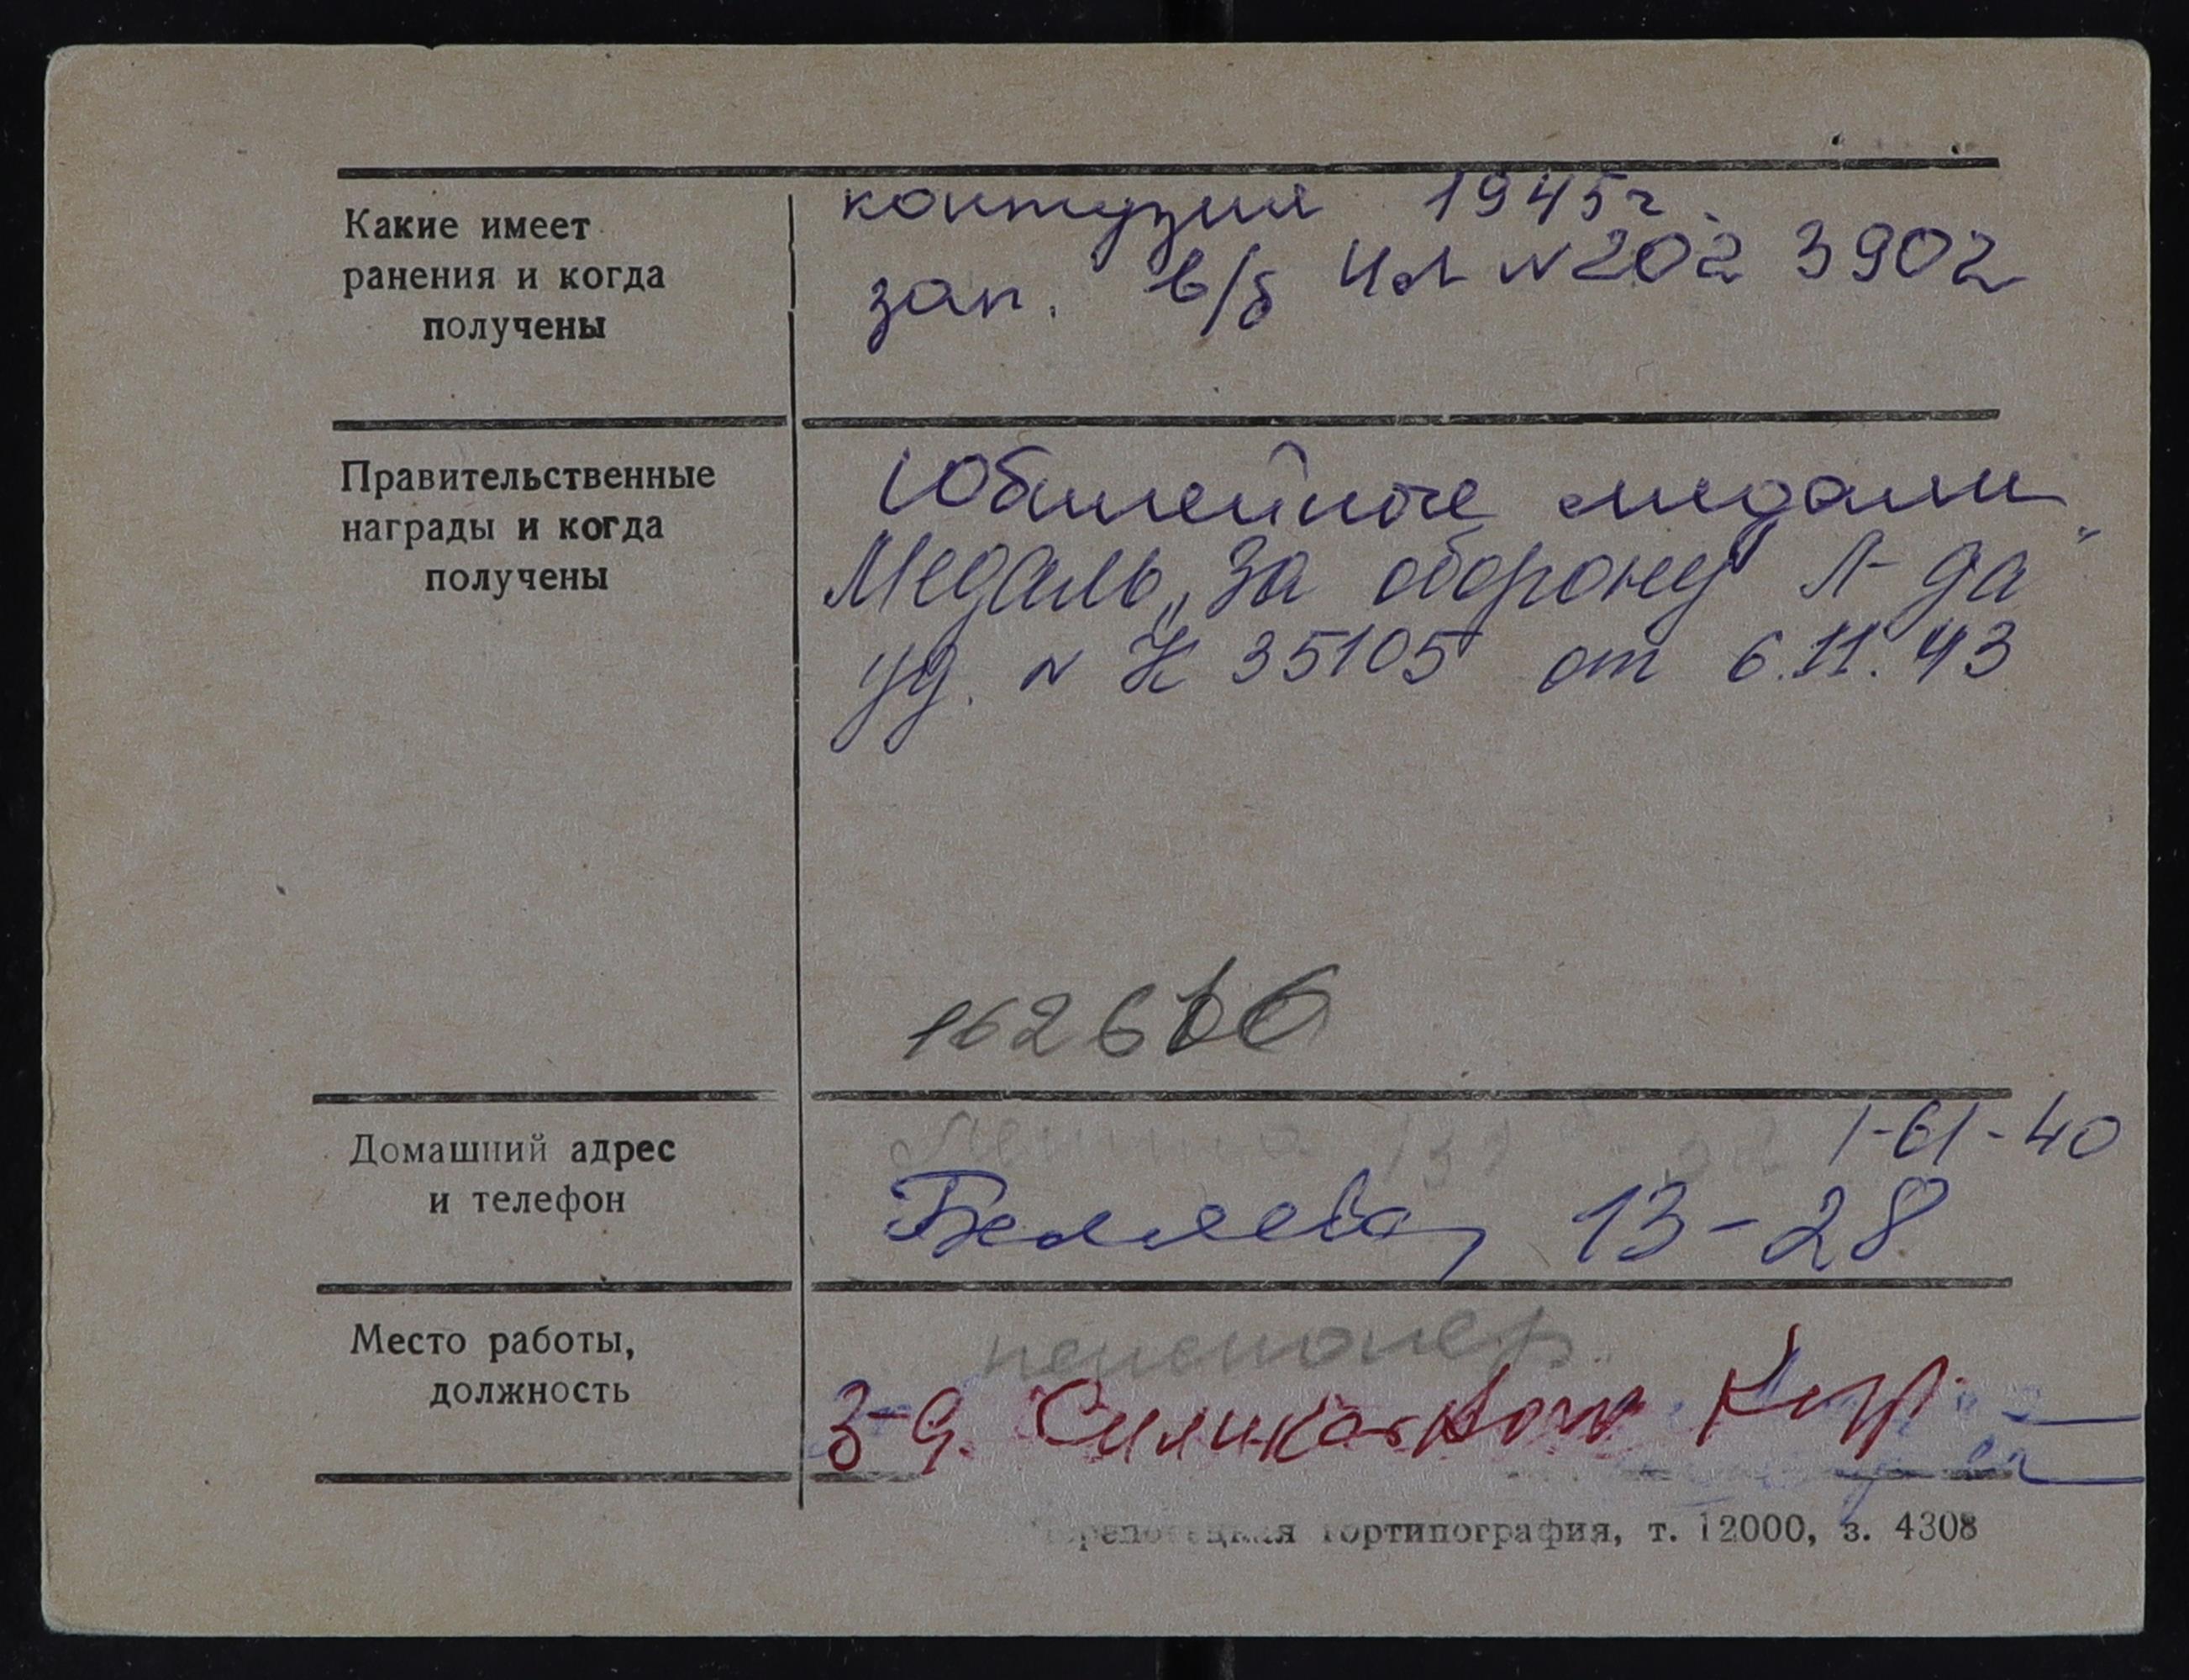 Какие имеет
ранения и когда
получены
контузия 1945г.
зап. в/б ИЛ N 202 3902
Правительственные
награды и когда
получены
Юбилейные медали
Медаль „За оборону Л-да"
уд. N К 35105 от 6.11.43
Домашний адрес
и телефон
1-61-40
Беляева, 13-28
Место работы,
должность
пенсионер
З-д. Кирп.
гортипография, т. 12000, з. 4308